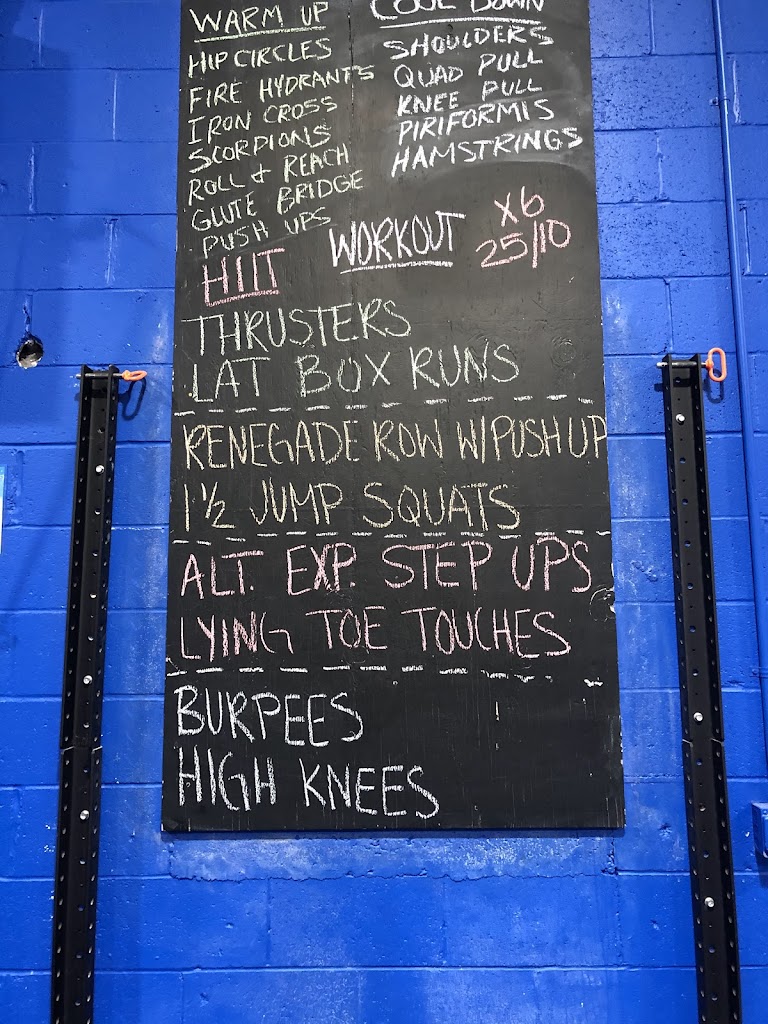 WARM UP
HIP CIRCLES
FIRE HYDRANTS
IRON CROSS
SCORPIONS
ROLL & REACH
GLUTE BRIDGE
PUSH UPS
COOL DOWN
SHOULDERS
QUAD PULL
KNEE PULL
PIRIFORMIS
HAMSTRINGS
HIIT
WORKOUT
X6
25/10
THRUSTERS
LAT BOX RUNS
RENEGADE ROW W/PUSH UP
1 1/2 JUMP SQUATS
ALT. EXP. STEP UPS
LYING TOE TOUCHES
BURPEES
HIGH KNEES